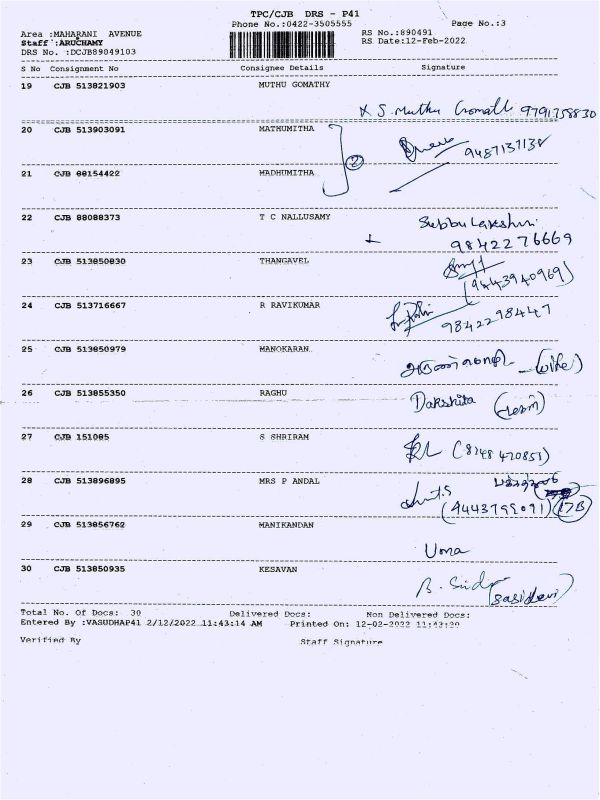 TPC/CJB DRS - P41
Phone No.:0422-3505555
Page No.:3
Area :MAHARANI AVENUE
RS No.:890491
Staff :ARUCHAMY
RS Date:12-Feb-2022
DRS No. :DCJB89049103
S No Consignment No Consignee Details Signature
19 CJB 513821903 MUTHU GOMATHY
X S. Muthu Gomathi 9791758830
20 CJB 513903091 MATHUMITHA
2
9487137138
21 CJB 88154422 MADHUMITHA
22 CJB 88088373 T C NALLUSAMY
Subbu Lakshmi
9842276669
23 CJB 513850830 THANGAVEL
(9443940969)
24 CJB 513716667 R RAVIKUMAR
9842298447
25 CJB 513850979 MANOKARAN
(wife)
26 CJB 513855350 RAGHU
Dakshita
27 CJB 151085 S SHRIRAM
(8248 470851)
28 CJB 513896895 MRS P ANDAL
(17B)
29 CJB 513856762 MANIKANDAN
Uma
30 CJB 513850935 KESAVAN
(sasidevi)
Total No. Of Docs: 30 Delivered Docs: Non Delivered Docs:
Entered By :VASUDHAP41 2/12/2022 11:43:14 AM Printed On: 12-02-2022 11:43:20
Verified By Staff Signature